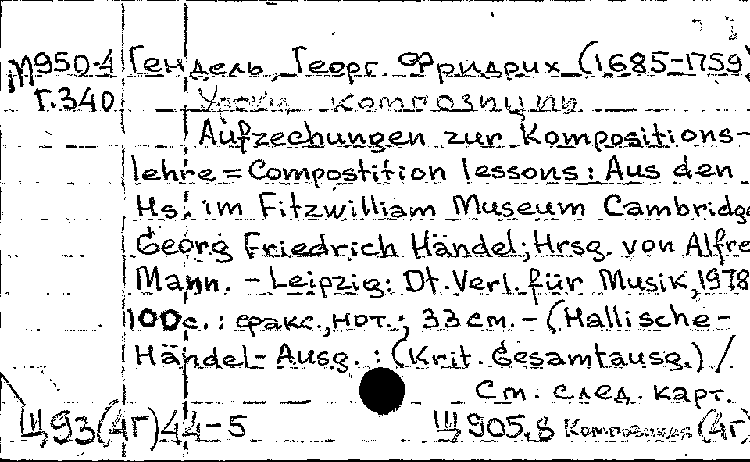 М950-4 Гендель, Георг Фридрих (1685-1759)
Г.340 Уроки композиции
Aufzechungen zur Kompositions-
lehre = Compostition lessons : Aus den
Hs. im Fitzwilliam Museum Cambridge
Georg Friedrich Händel; Hrsg. von Alfre
Mann. - Leipzig: Dt. Verl. für Musik, 1978
100с. : факс., нот.; 33 см. - (Hallische-
Händel-Ausg. : (Krit. Gesamtausg.) /
См. след. карт.
Щ93(4Г)44-5 Щ905.8 Композиция (4Г)